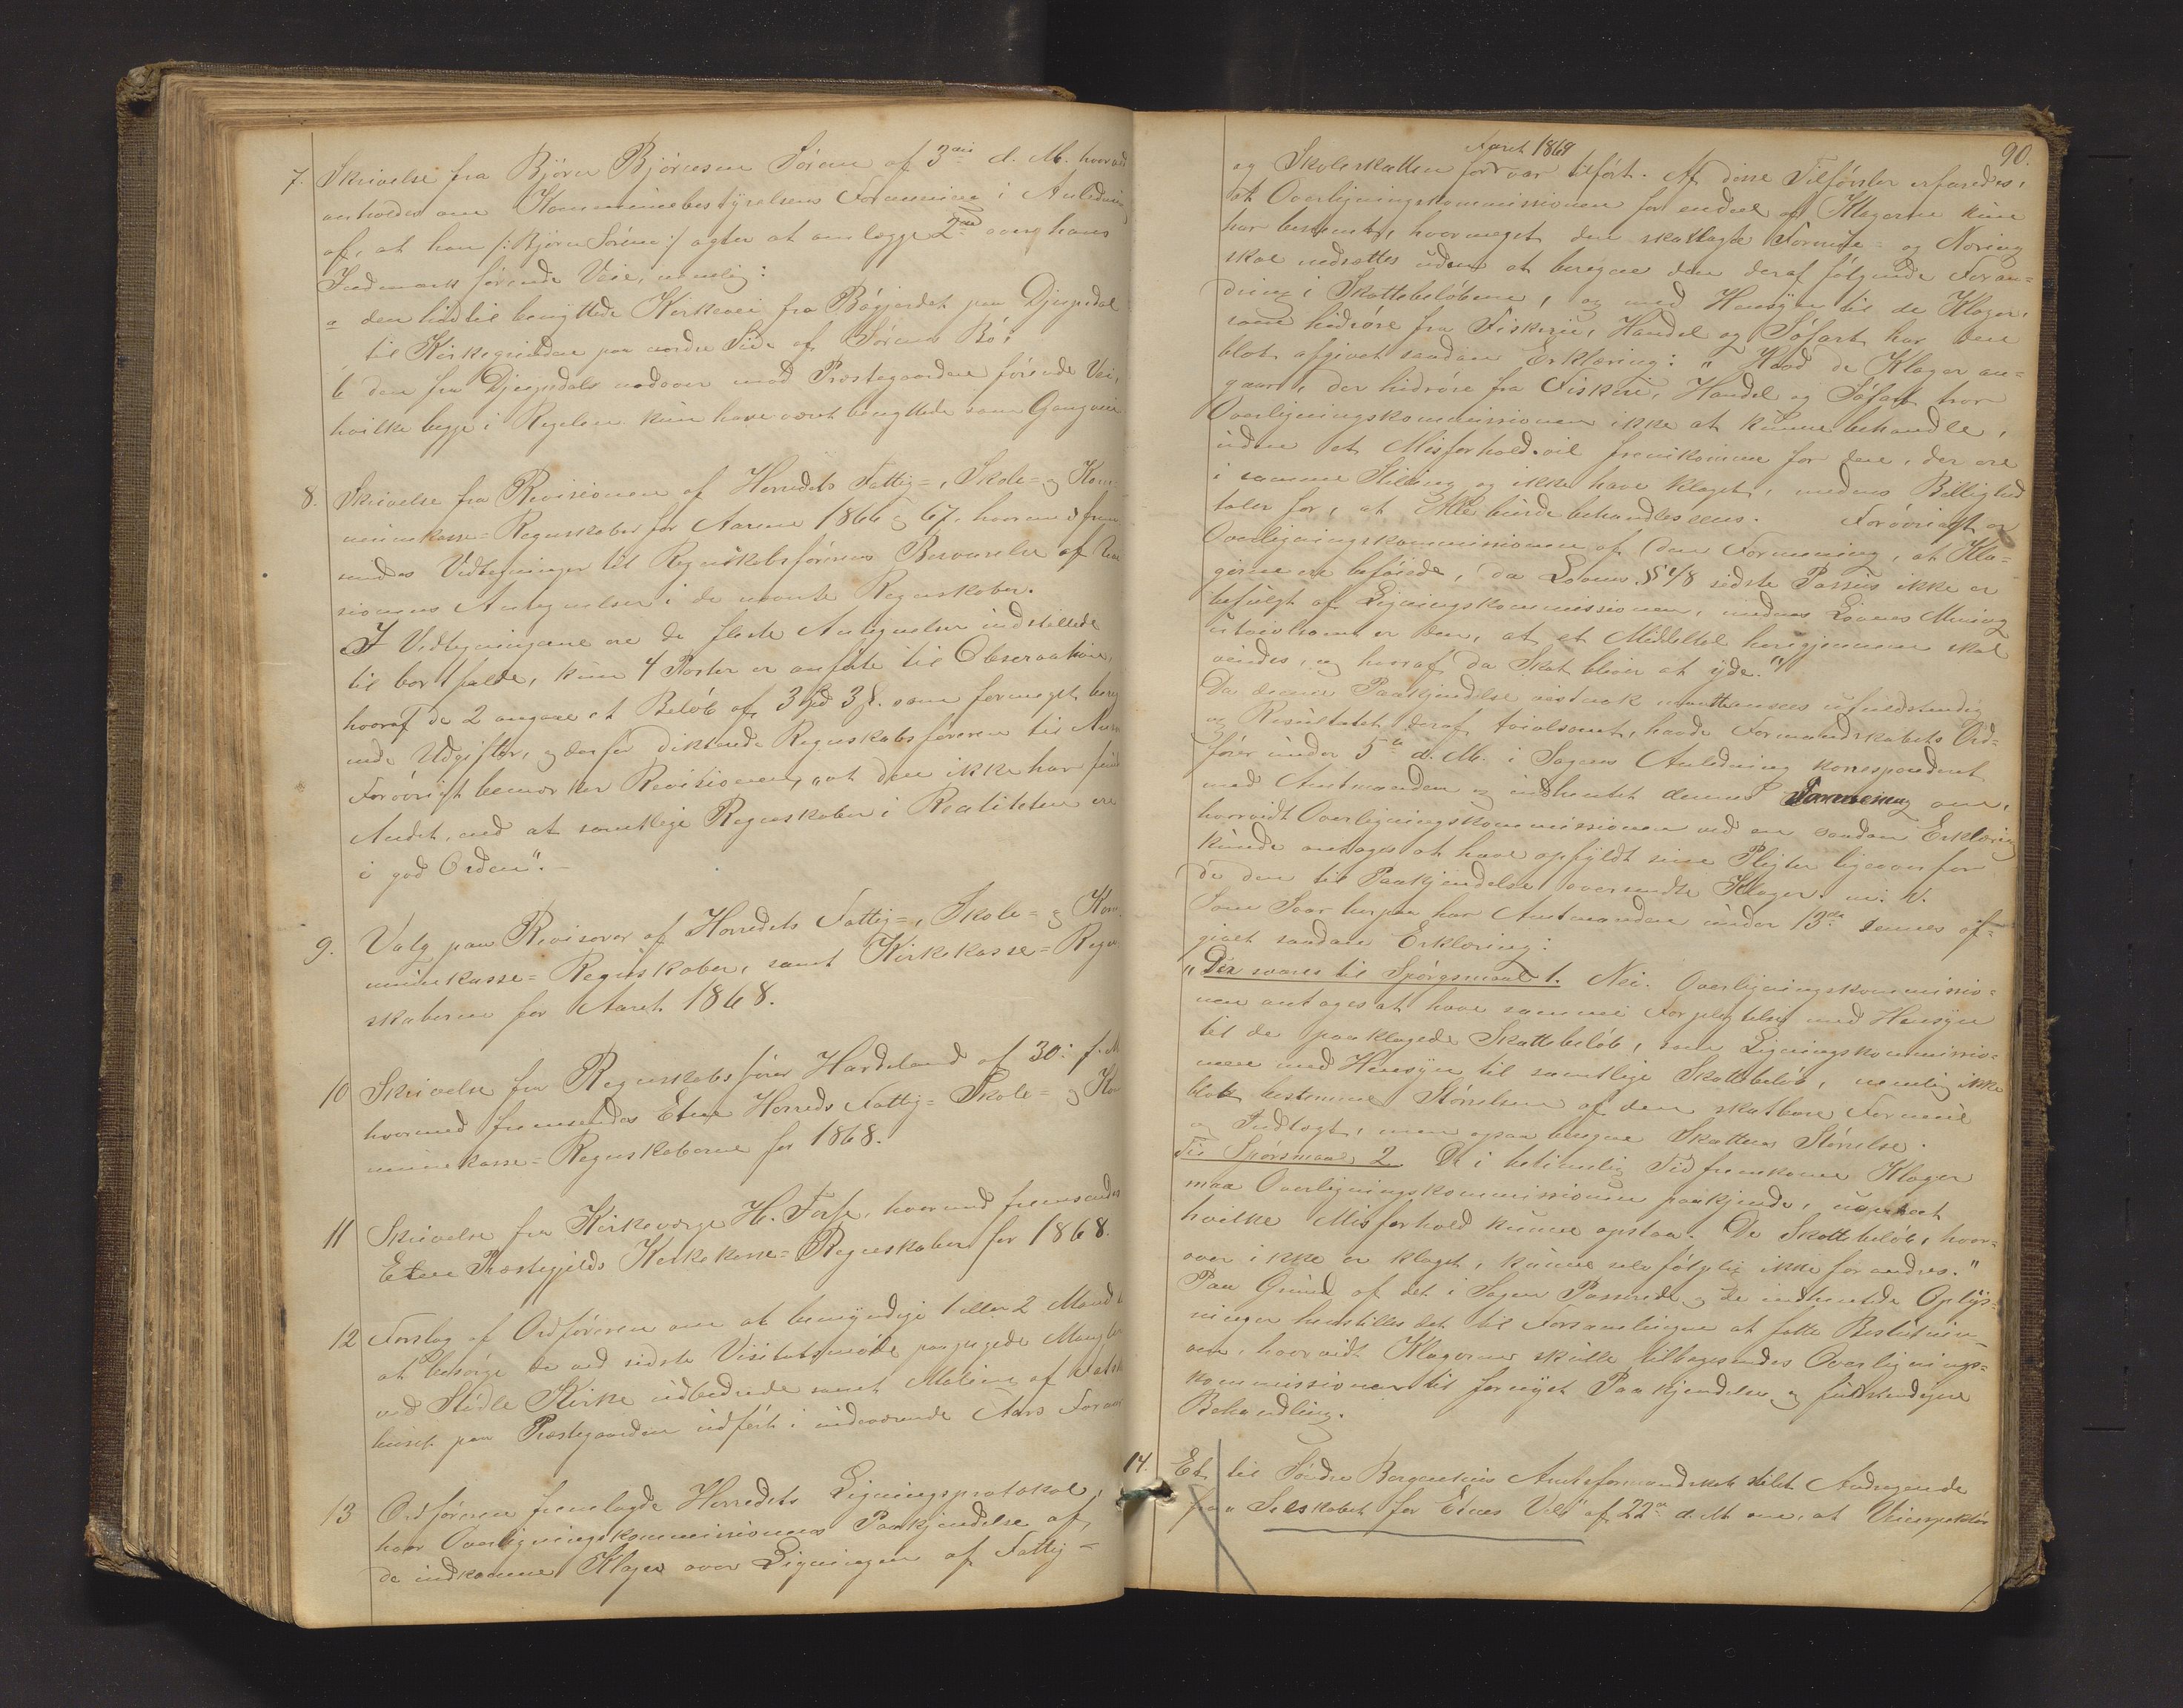 7. Skrivelse fra Bjørn Bjørnesen Sørem af 3die d. M. hvorved
anholdes om Kommunebestyrelsens Formening i Anledning
af, at han /: Bjørn Sørem :/ agter at omlægge 2de over hans
Indmark førende Veie, nemlig:
a den hidtil benyttede Kirkevei fra Bøgjerdet paa Djupedal
til Kirkegrinden paa nordre Side af Sørems Bø;
b den fra Djupedals nedover mod Præstegaarden førende Vei,
hvilke begge i Regelen kun have været benyttede som Gangveie
8. Skrivelse fra Revisionen af Herredets Fattig=, Skole= og Kom-
munekasse= Regnskaber for Aarene 1866 og 67, hvorved frem-
sendes Vedtegninger til Regnskabsførerens Besvarelse af Revi
sionens Antegnelser i de nævnte Regnskaber.
I Vedtegningerne ere de fleste Antegnelser indstillede
til bortfalde, kun 4 Poster er anførte til Observation,
hvoraf de 2 angaae et Beløb af 3 Spd 3 ß. som formeget bereg
nede Udgifter, og derfor
Forøvrigt bemærker Revisionen, "at den ikke har fundet
Andet, end at samtlige Regnskaber i Realiteten ere
i god Orden".
9. Valg paa Revisorer af Herredets Fattig=, Skole= og Kom-
munekasse= Regnskaber, samt Kirkekasse= Regn-
skaberne for Aaret 1868.
10 Skrivelse fra Regnskabsfører Hardeland af 30. f. M
hvormed fremsendes Etne Herreds Fattig= Skole= og Kom
munekasse= Regnskaberne for 1868.
11 Skrivelse fra Kirkeværge H. Tesse, hvormed fremsendes
Etne Præstegjelds Kirkekasse= Regnskaber for 1868.
12 Forslag af Ordføreren om at bemyndige 1 eller 2 Mænd til
at besørge de ved sidste Visitatsmøde paapegede Mangler
ved Stødle Kirke udbedrede samt Maling af
huset paa Præstegaarden udført i indeværende Aars Foraar
13 Ordføreren fremlagde Herredets Ligningsprotokol,
hvor Overligningskommissionens Paakjendelse af
de indkomne Klager over Ligningen af Fattig=
Aaret 1869
90.
og Skoleskatten forvar tilført. Af disse Tilførsler erfaredes,
at Overligningskommissionen for endeel af Klagerne kun
har bestemt, hvormeget den skatlagte Formue= og Næring
skal nedsættes uden at beregne den deraf følgende Foran=
dring i Skattebeløbene, og med Hensyn til de Klager,
som hidrøre fra Fiskerie, Handel og Søfart har den
blot afgivet saadan Erklæring: "Hvad de Klager an=
gaar, der hidrøre fra Fiskeri, Handel og Søfart tror
Overligningskommissionen ikke at kunne behandle,
uden at Misforhold vil fremkomme for dem, der ere
i samme Stilling og ikke have klaget, medens Billighed
taler for, at Alle burde behandles eens. Forøvrigt er
Overligningskommissionen af den Formening, at Kla=
gerne ere beføiede, da Lovens § 48 sidste Passus ikke er
befulgt af Ligningskommissionen, medens Lovens Mening
utvivlsomt er den, at et Middeltal herigjennem skal
vindes, og hvoraf da Skat bliver at yde."
Da denne Paakjendelse vistnok maatte ansees ufuldstendig
og Resultatet deraf tvivlsomt, havde Formandskabets Ord=
fører under 5te d. M. i Sagens Anledning korresponderet
med Amtmanden og indhentet dennes Formening om,
hvorvidt Overligningskommissionen ved en saadan Erklæring
kunde antages at have opfyldt sine Pligter ligeoverfor
de den til Paakjendelse oversendte Klager. m. V.
Som Svar herpaa har Amtmanden under 13de dennes af=
givet saadan Erklæring:
"Der svares til Spørgsmaal 1. Nei. Overligningskommissio=
nen antages at have samme Forpligtelse med Hensyn
til de paaklagede Skattebeløb, som Ligningskommissio=
nen med Hensyn til samtlige Skattebeløb, nemlig ikke
blot bestemme Størrelsen af den skatbare Formue
og Indtægt, men ogsaa beregne Skattens Størrelse.
Til Spørsmaal 2 De i betimelig Tid fremkomne Klager
maa Overligningskommissionen paakjende, uanseet
hvilke Misforhold kunne opstaa. De Skattebeløb, hvor=
over ikke er klaget, kunne selvfølgelig ikke forandres."
Paa Grund af det i Sagen Passerede og de indhentede Oplys=
ninger henstilles det til Forsamlingen at fatte Beslutning
om, hvorvidt Klagerne skulle tilbagesendes Overlignings=
kommissionen til fornyet Paakjendelse og fuldstendigere
Behandling.
14. Et til Søndre Bergenhus Amtsformandskab stilet Andragende
fra "Selskabet for Etnes Vel" af 22de d. M. om, at Veiinspektør